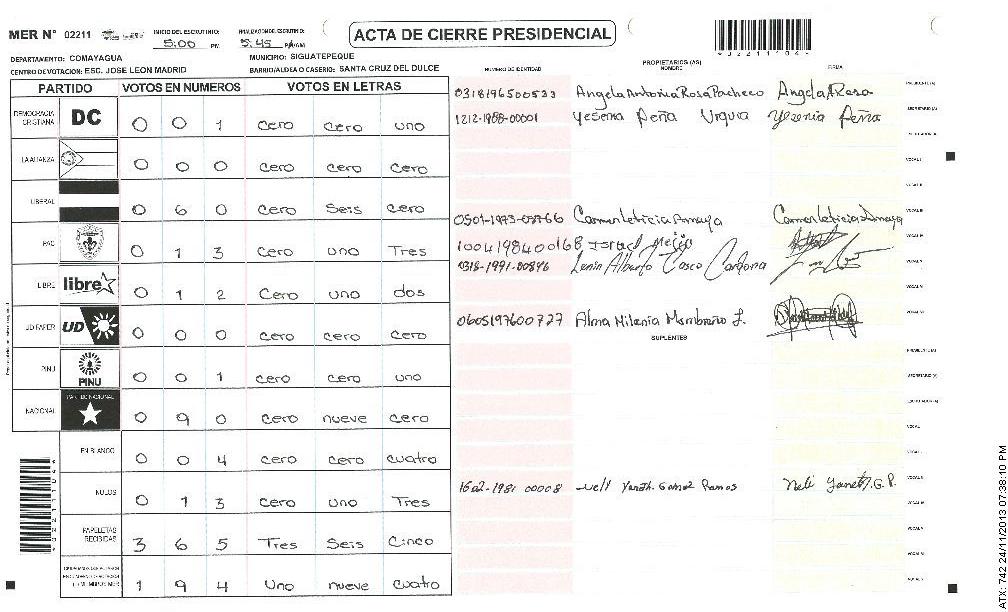 MER N° 02211
INICIO DEL ESCRUTINIO: 5:00 PM
FINALIZACION DEL ESCRUTINIO: 5:45
ACTA DE CIERRE PRESIDENCIAL
DEPARTAMENTO: COMAYAGUA
MUNICIPIO: SIGUATEPEQUE
CENTRO DE VOTACION: ESC. JOSE LEON MADRID
BARRIO/ALDEA O CASERIO: SANTA CRUZ DEL DULCE
NUMERO DE IDENTIDAD
PROPIETARIOS (AS)
NOMBRE
FIRMA
PARTIDO VOTOS EN NUMEROS VOTOS EN LETRAS
DEMOCRACIA CRISTIANA DC 0 0 1 cero cero uno
LA ALIANZA 0 0 0 cero cero cero
LIBERAL 0 6 0 cero Seis cero
PAC 0 1 3 cero uno Tres
LIBRE libre 0 1 2 Cero uno dos
UD FAPER UD 0 0 0 cero cero cero
PINU PINU 0 0 1 cero cero uno
NACIONAL PARTIDO NACIONAL 0 9 0 cero nueve cero
EN BLANCO 0 0 4 cero cero cuatro
NULOS 0 1 3 cero uno Tres
PAPELETAS RECIBIDAS 3 6 5 Tres Seis Cinco
1 9 4 Uno nueve cuatro
0318196500533 Angela Antonia Rosa Pacheco Angela A Rosa
1212-1988-00001 Yesenia Peña Urquia Yesenia Peña
0501-1973-03766 Carmen Leticia Amaya Carmen Leticia Amaya
1004198400168 Israel Mejia
0318-1991-00846 Lenin Alberto Cosco Cardona
0605197600727 Alma Milenia Mombreño J.
SUPLENTES
1602-1981 00008 Neli Yaneth Gomez Ramos Neli Yanet J.G.P.
ATX: 742 24/11/2013 07:38:10 PM